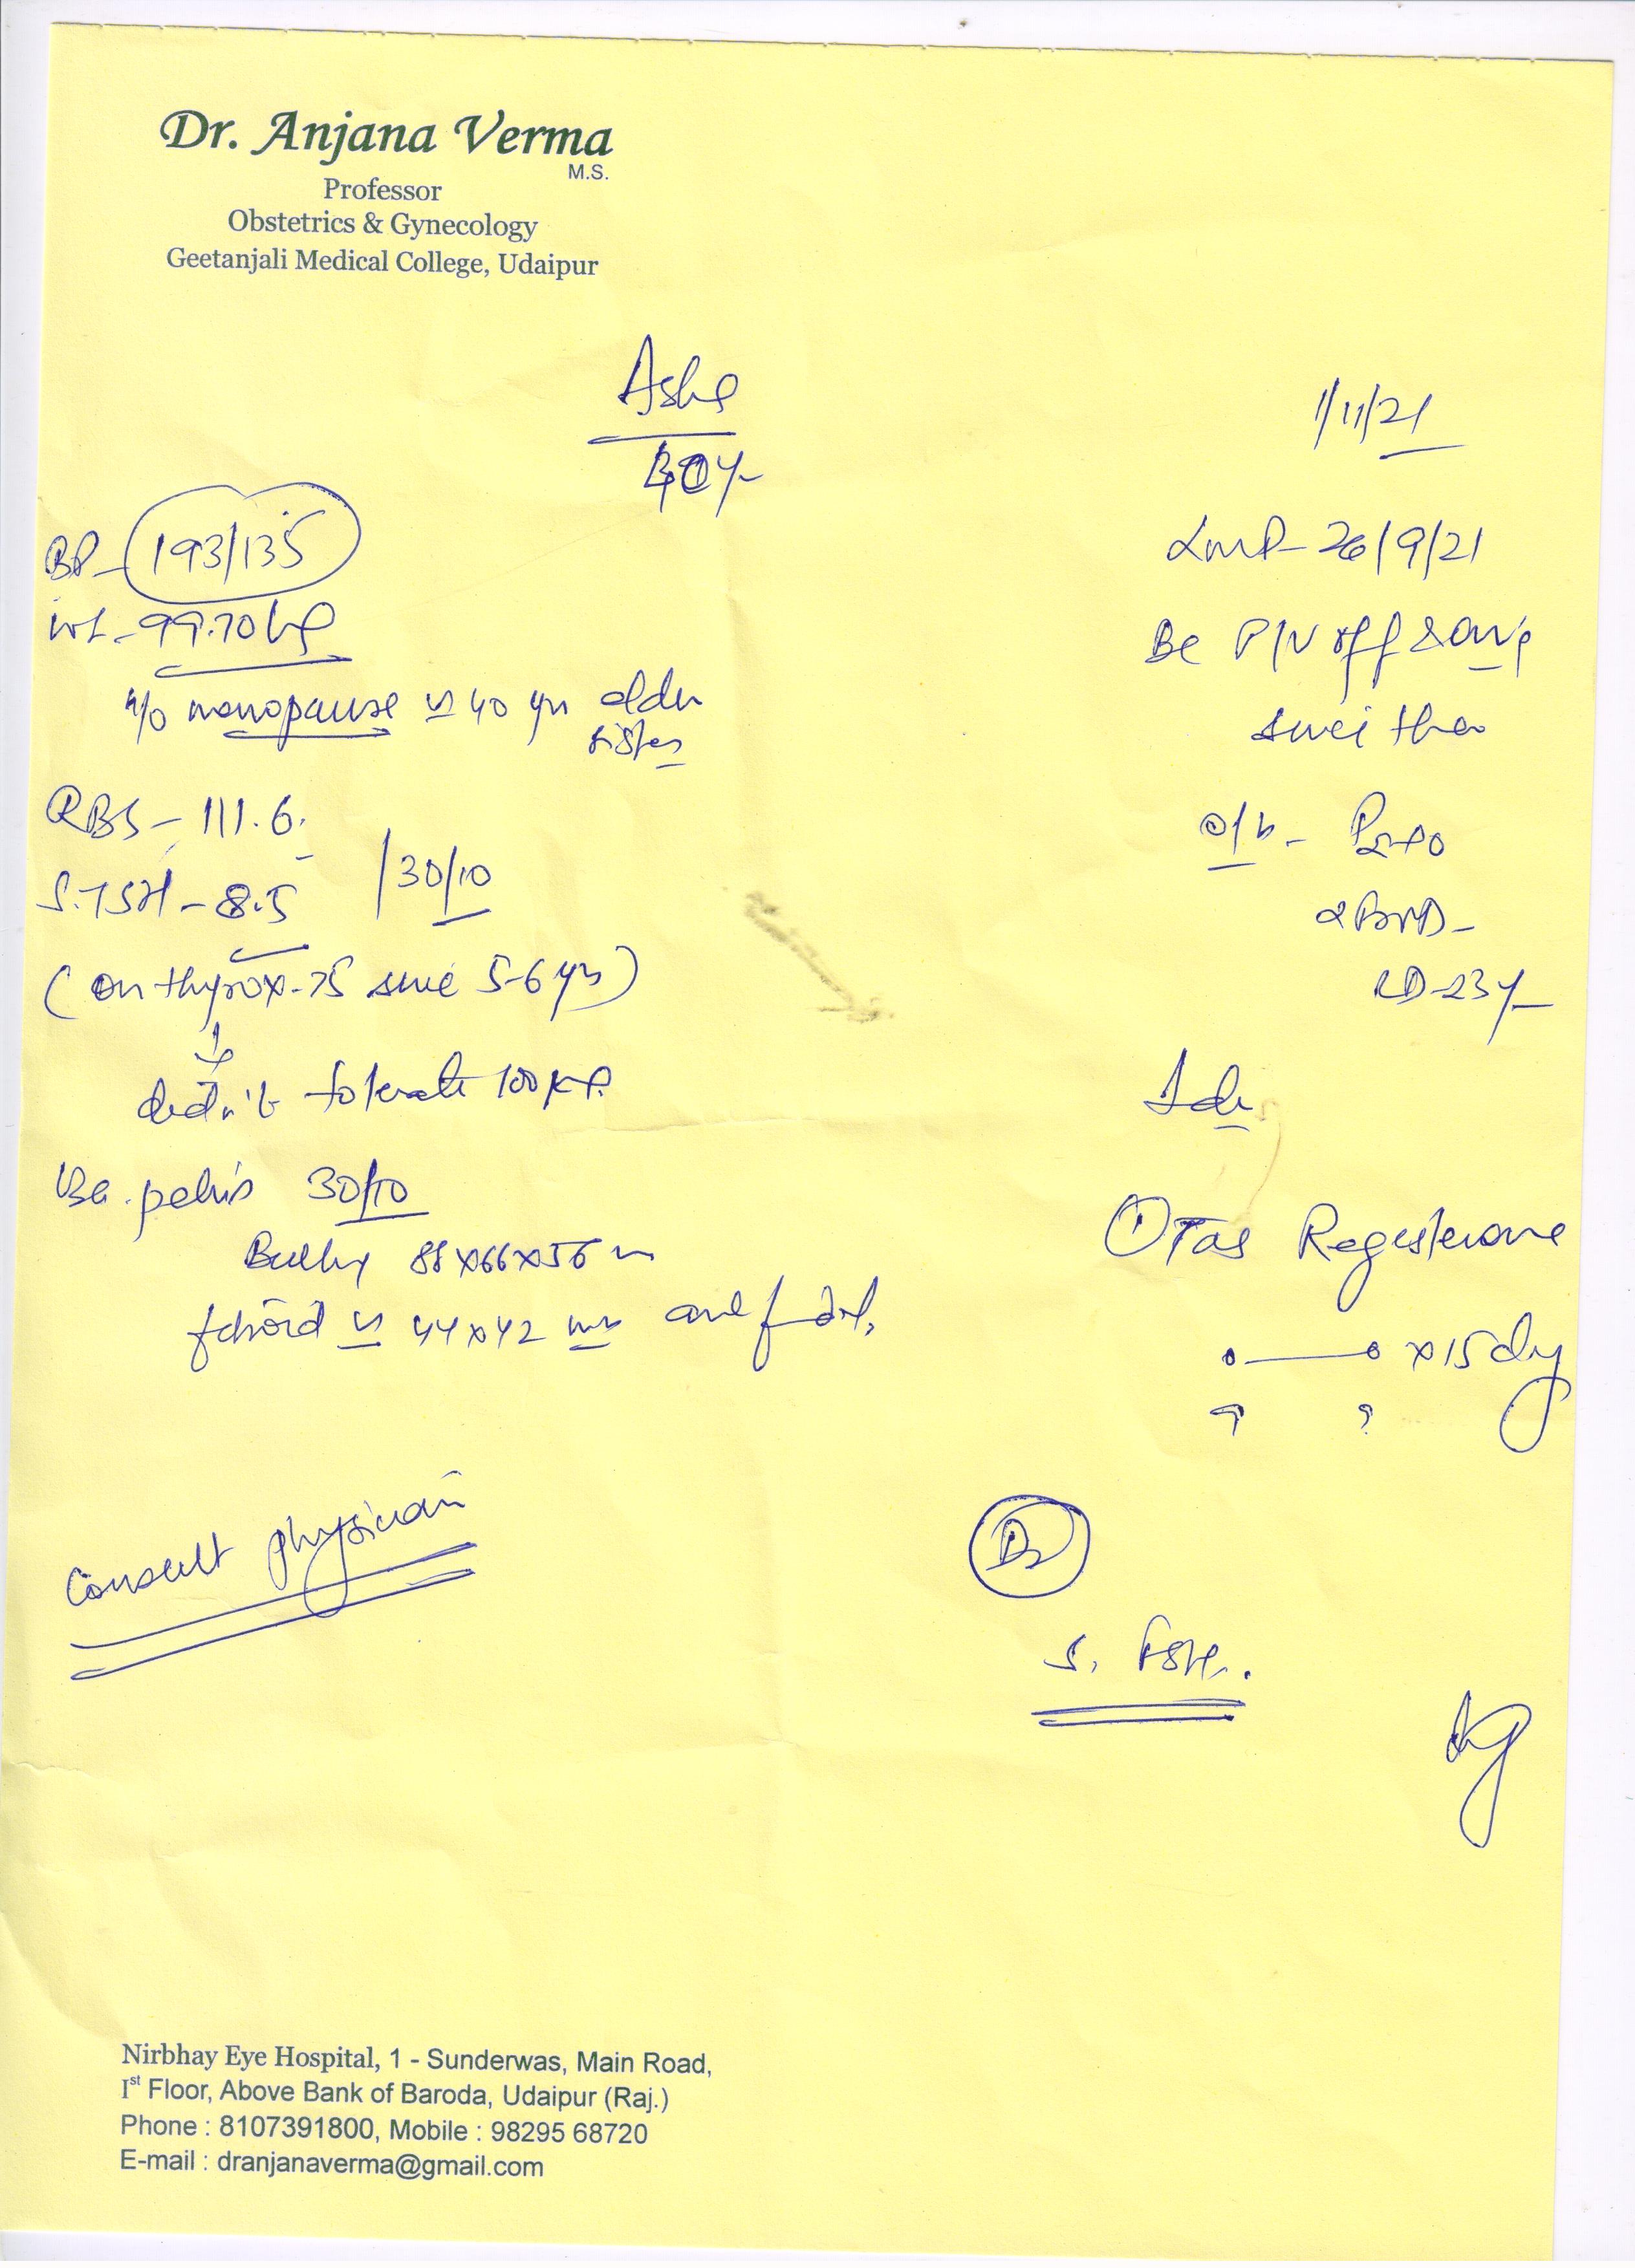 Dr. Anjana Verma
M.S.
Professor
Obstetrics & Gynecology
Geetanjali Medical College, Udaipur
1/11/21
BP- 193/135
wt- 99.70 kg
menopause 40 yrs elder
sister
LMP- 26/9/21
P/V off & on
RBS - 111.6
S. TSH - 8.5
30/10
(on thyrox-75 since 5-6 yrs)
didn't tolerate 100
o/h - P2+0
RD-23y
pelvis 30/10
Bulky 88x66x56
fibroid 44x42 mm
Adv
① Tab Regesterone
x 15 day
Consult physician
S. FSH
Nirbhay Eye Hospital, 1 - Sunderwas, Main Road,
Ist Floor, Above Bank of Baroda, Udaipur (Raj.)
Phone : 8107391800, Mobile : 98295 68720
E-mail : dranjanaverma@gmail.com